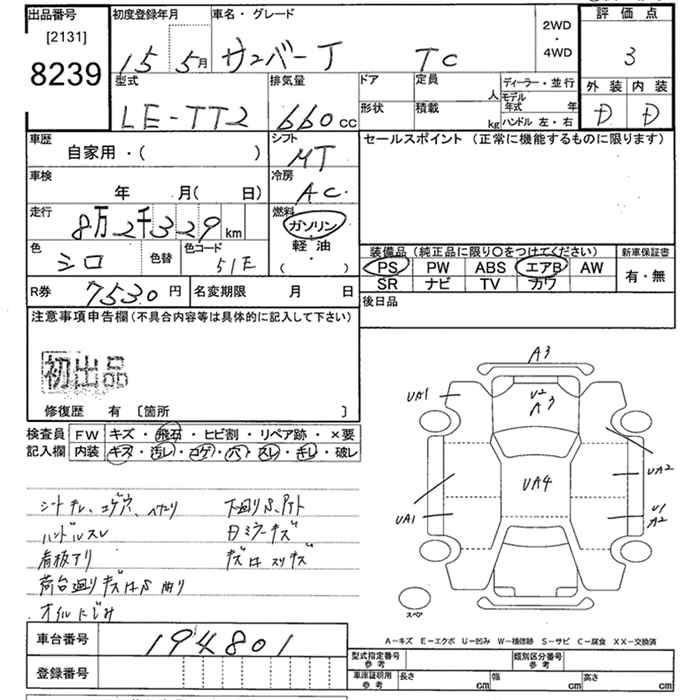 出品番号
[2131]
8239
初度登録年月
15 5月
車名・グレード
サンバーT TC
2WD
・
4WD
評価点
3
外装 内装
D D
型式
LE-TT2
排気量
660 cc
ドア
定員
人
形状
積載
kg
ディーラー・並行
モデル年式 年
ハンドル 左・右
車歴
自家用・( )
シフト
MT
車検
年 月( 日)
冷房
AC.
走行
8万2千329 km
燃料
ガソリン
軽油
( ・ )
色
シロ
色替
色コード
51E
セールスポイント (正常に機能するものに限ります)
装備品 (純正品に限り○をつけてください)
PS PW ABS エアB AW
SR ナビ TV カワ
新車保証書
有・無
R券 7530 円
名変期限 月 日
後日品
注意事項申告欄 (不具合内容等は具体的に記入して下さい)
初出品
修復歴 有 [箇所 ]
検査員記入欄
FW キズ・飛石・ヒビ割・リペア跡・×要
内装 キズ・汚レ・コゲ・穴・スレ・キレ・破レ
ハンドルスレ
看板アリ
オイルにじみ
A3
UA1
U2
A3
UA4
UA2
UA1
U1
A2
スペア
A-キズ E-エクボ U-凹み W-補修跡 S-サビ C-腐食 XX-交換済
車台番号 194801
登録番号
型式指定番号
参考
類別区分番号
参考
車庫証明用
参考
長さ cm
幅 cm
高さ cm